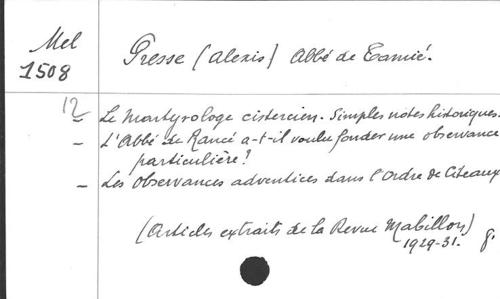 Mel
1508
Presse (Alexis) Abbé de Tamié.
12
- Le Martyrologe cistercien. Simples notes historiques.
- L'Abbé de Rancé a-t-il voulu fonder une observance
particulière?
- Les Observances adventices dans l'Ordre de Citeaux
(Articles extraits de la Revue Mabillon)
1929-31. 8°